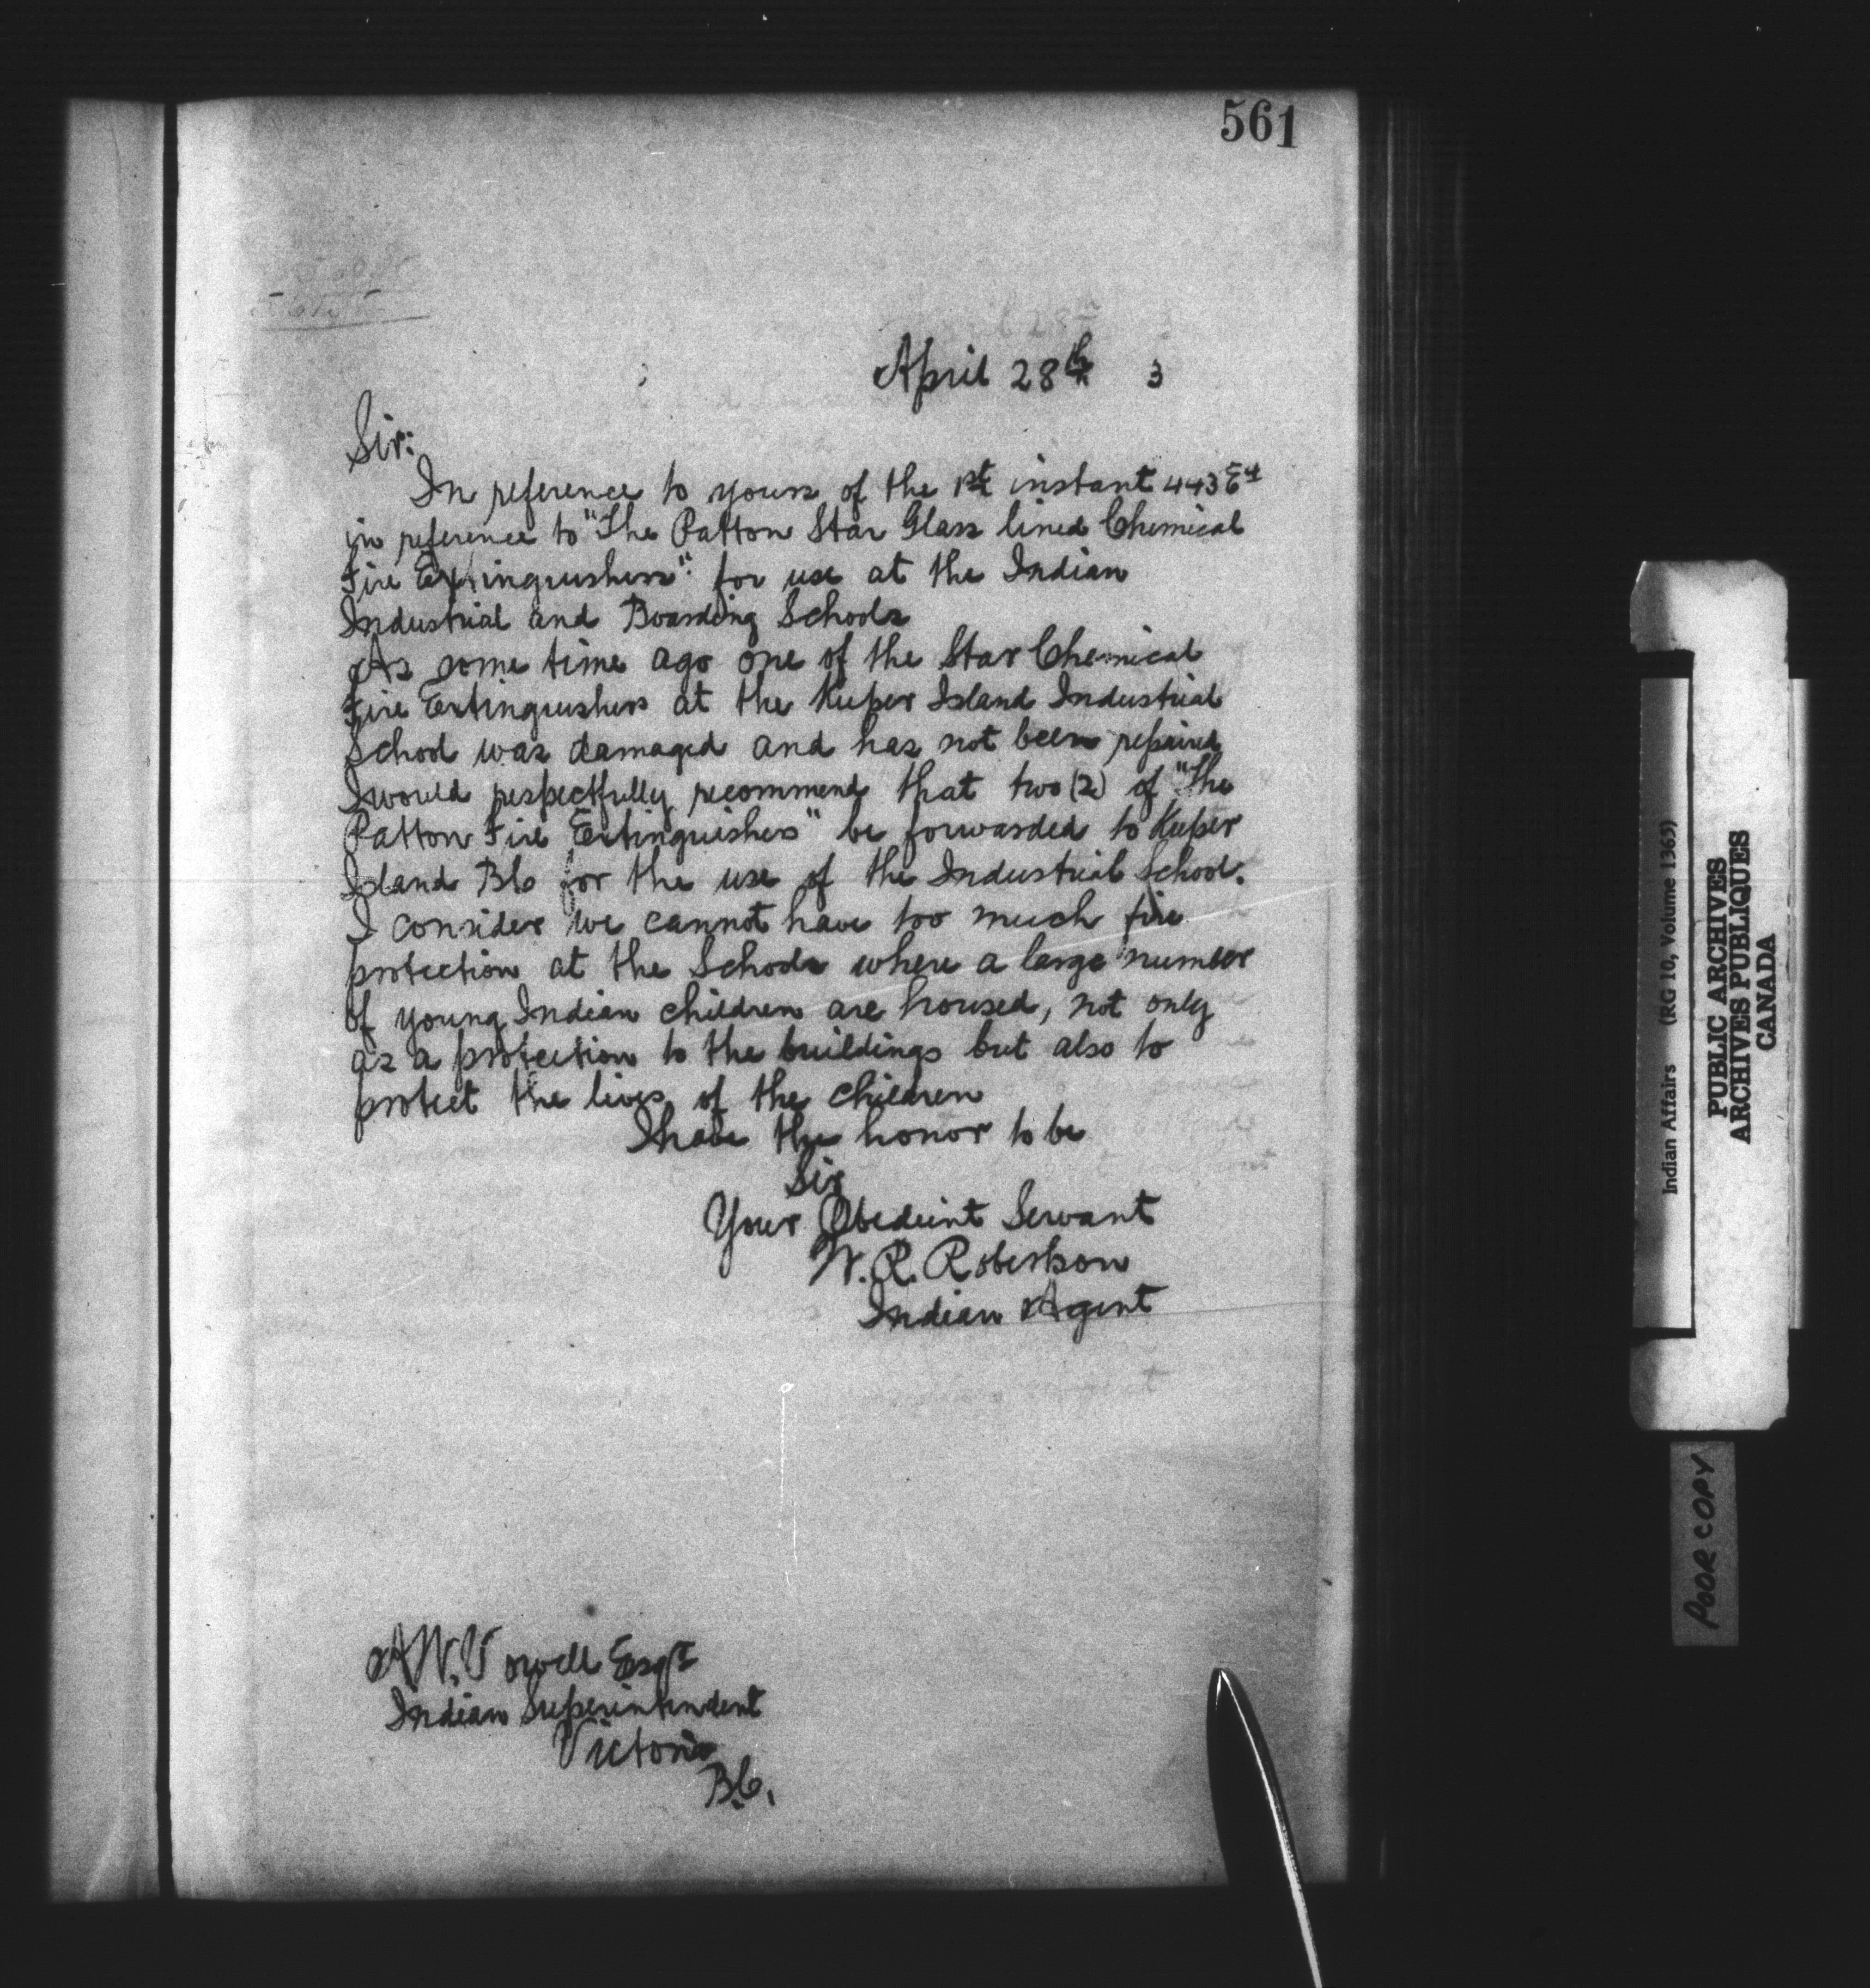 561
April 28th 3
Sir:
In reference to yours of the 1st instant
in reference to "The Patton Star Glass lined Chemical
Fire Extinguishers". for use at the Indian
Industrial and Boarding Schools
As some time ago one of the Star Chemical
Fire Extinguishers at the Kuper Island Industrial
School was damaged and has not been repaired
I would respectfully recommend that two (2) of "The
Patton Fire Extinguishers" be forwarded to Kuper
Island B C for the use of the Industrial School.
I consider we cannot have too much fire
protection at the Schools where a large number
of young Indian children are housed, not only
as a protection to the buildings but also to
protect the lives of the children
I have the honor to be
Sir
Your Obedient Servant
W. R. Robertson
Indian Agent
A W. Vowell Esqr
Indian Superintendent
Victoria
B.C.
Indian Affairs (RG 10, Volume 1365)
PUBLIC ARCHIVES
ARCHIVES PUBLIQUES
CANADA
POOR COPY